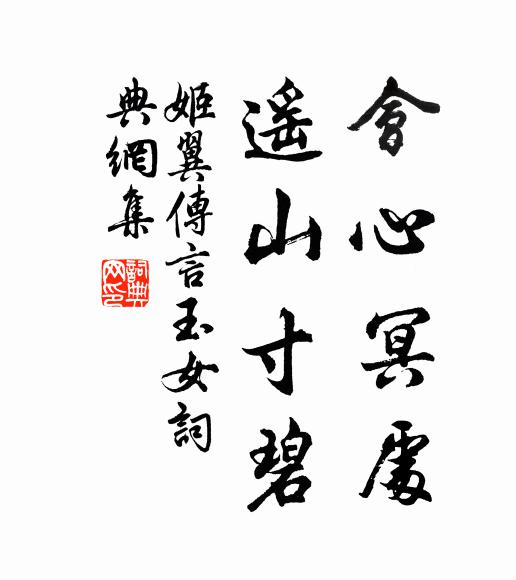 會心冥處
遥山寸碧
姬翼傳言玉女詞
典網集
詞典
网印